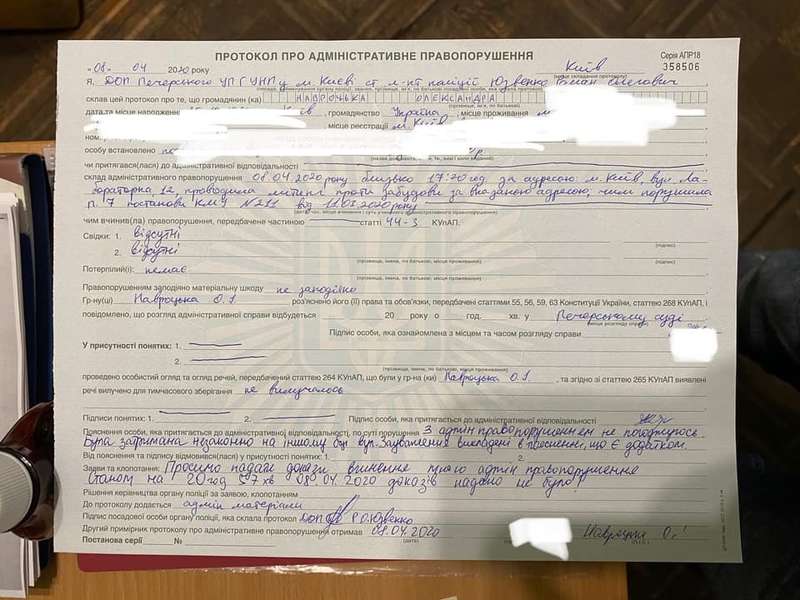 ПРОТОКОЛ ПРО АДМІНІСТРАТИВНЕ ПРАВОПОРУШЕННЯ
Серія АПР18
358506
"08" 04 2020 року Київ
Я, ДОП Печерського УП ГУНП у м. Києві ст. л-нт поліції Юзвенко Олегович
склав цей протокол про те, що громадянин (ка) НАВРОЦЬКА ОЛЕКСАНДРА
дата та місце народження , громадянство Україна, місце проживання м.
місце реєстрації м. Київ
особу встановлено
чи притягався(лася) до адміністративної відповідальності
склад адміністративного правопорушення 08.04.2020 року близько 17:20 год за адресою: м. Київ, вул. Ла-
бораторна, 12, проводила мітинг проти забудови за вказаною адресою, чим порушила
п. 7 постанови КМУ №211 від 11.03.2020 року
чим вчинив(ла) правопорушення, передбачене частиною статті 44-3 КУпАП.
Свідки: 1. відсутні
2. відсутні
Потерпілий(і): немає
Правопорушенням заподіяно матеріальну шкоду не заподіяно
Гр-ну(ці) Навроцька О.І. роз'яснено його (її) права та обов'язки, передбачені статтями 55, 56, 59, 63 Конституції України, статтею 268 КУпАП, і
повідомлено, що розгляд адміністративної справи відбудеться 20 року о год. хв. у Печерському суді
Підпис особи, яка ознайомлена з місцем та часом розгляду справи
У присутності понятих: 1.
2.
проведено особистий огляд та огляд речей, передбачений статтею 264 КУпАП, що були у гр-на (ки) Навроцька О.І., та згідно зі статтею 265 КУпАП виявлені
речі вилучено для тимчасового зберігання не вилучалось
Підписи понятих: 1. 2. Підпис особи, що притягається до адміністративної відповідальності
Пояснення особи, яка притягається до адміністративної відповідальності, по суті порушення З адмін правопорушенням не погоджуюсь.
Була затримана незаконно на іншому боці вул. Зауваження викладені в поясненні, що є додатком.
Від пояснення та підпису відмовився(лася) у присутності понятих: 1. 2.
Заяви та клопотання: Просимо надати докази вчинення цього адмін правопорушення
Станом на 20 год 57 хв 08.04.2020 доказів надано не було!
Рішення керівництва органу поліції за заявою, клопотанням
До протоколу додається адмін матеріали
Підпис посадової особи органу поліції, яка склала протокол ДОП Р.О. Юзвенко
Другий примірник протоколу про адміністративне правопорушення отримав 08.04.2020 Навроцька О.І.
Постанова серії №